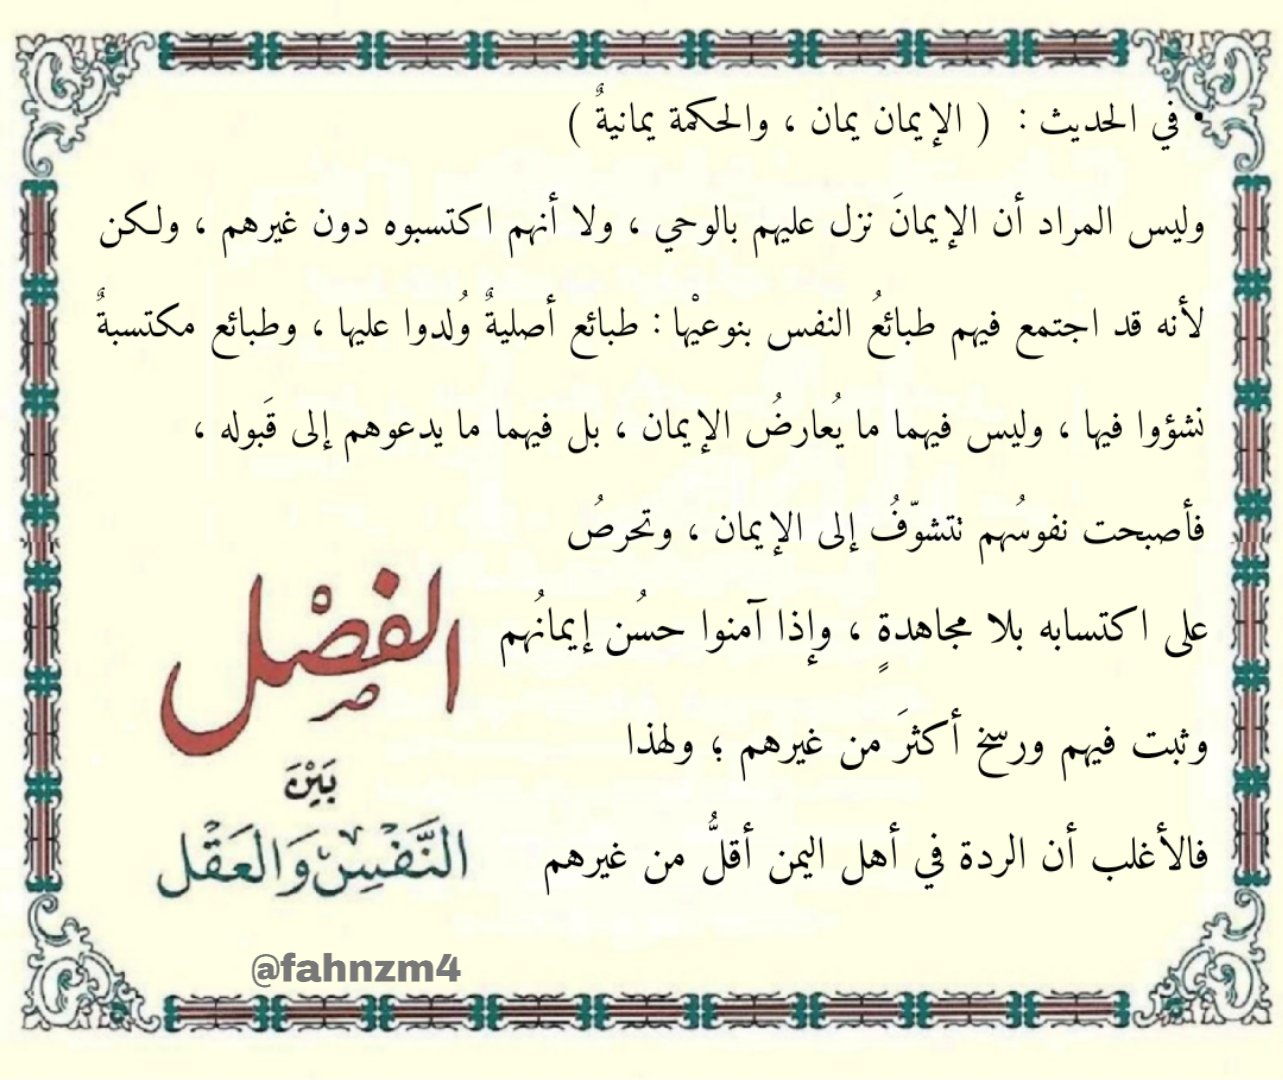 • في الحديث : ( الإيمان يمان ، والحكمة يمانيةٌ )
وليس المراد أن الإيمانَ نزل عليهم بالوحي ، ولا أنهم اكتسبوه دون غيرهم ، ولكن
لأنه قد اجتمع فيهم طبائعُ النفس بنوعيْها : طبائع أصليةٌ وُلدوا عليها ، وطبائع مكتسبةٌ
نشؤوا فيها ، وليس فيهما ما يُعارضُ الإيمان ، بل فيهما ما يدعوهم إلى قَبوله ،
فأصبحت نفوسُهم تتشوّفُ إلى الإيمان ، وتحرصُ
على اكتسابه بلا مجاهدةٍ ، وإذا آمنوا حسُن إيمانُهم
وثبت فيهم ورسخ أكثرَ من غيرهم ؛ ولهذا
فالأغلب أن الردة في أهل اليمن أقلُّ من غيرهم
الفصْل
بَيْنَ
النَّفْسِ وَالعَقْل
@fahnzm4